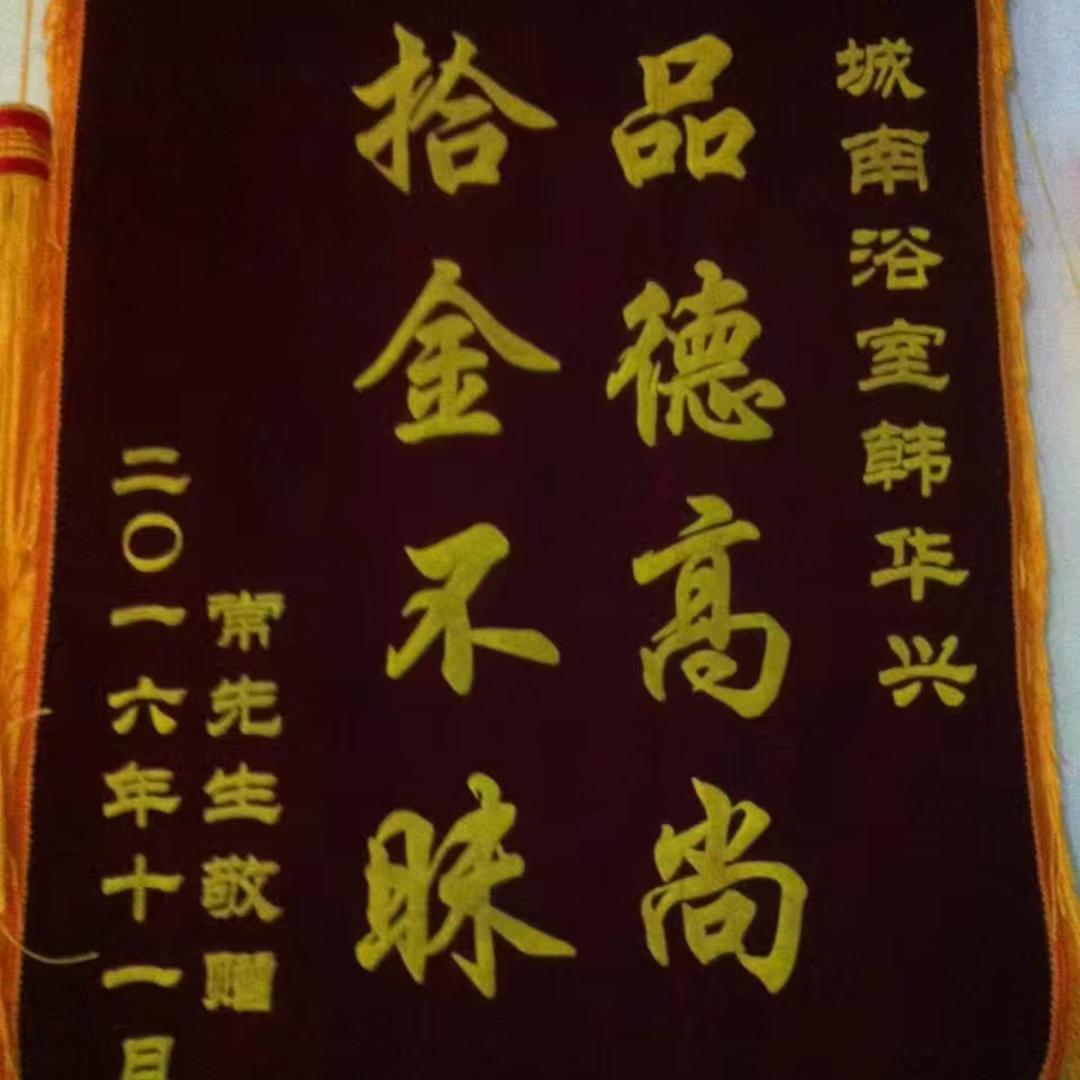 城南浴室韩华兴
品德高尚
拾金不昧
常先生敬赠
二〇一六年十一月